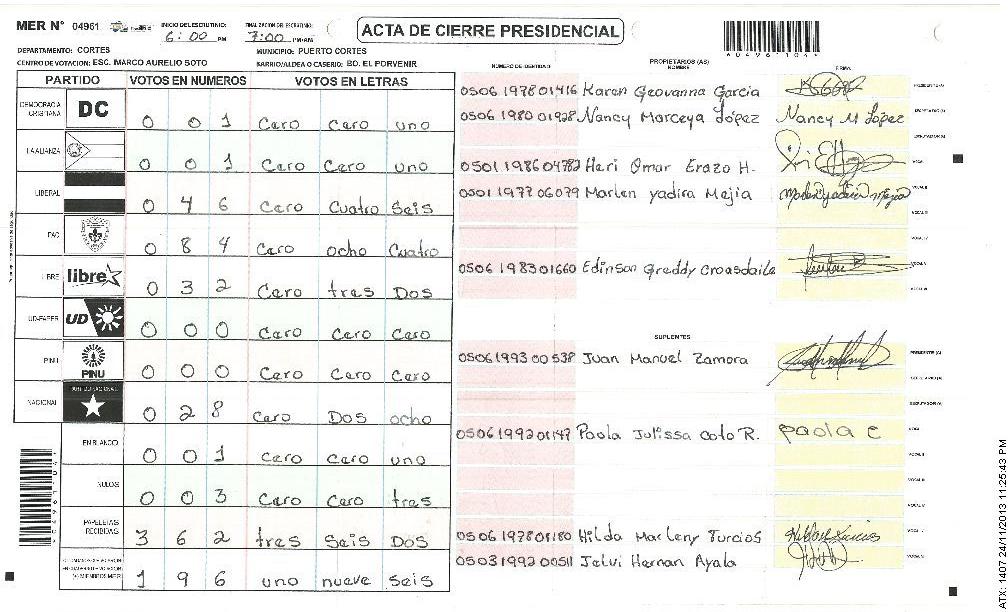 MER N° 04961 INICIO DE ESCRUTINIO: 6:00 PM FINALIZACION DEL ESCRUTINIO: 7:00 PM/AM ACTA DE CIERRE PRESIDENCIAL
DEPARTAMENTO: CORTES MUNICIPIO: PUERTO CORTES
CENTRO DE VOTACION: ESC. MARCO AURELIO SOTO BARRIO/ALDEA O CASERIO: BO. EL PORVENIR
PARTIDO VOTOS EN NUMEROS VOTOS EN LETRAS
DEMOCRACIA CRISTIANA DC 0 0 1 Cero Cero uno
LA ALIANZA 0 0 1 Cero Cero uno
LIBERAL 0 4 6 Cero Cuatro Seis
PAC 0 8 4 Cero ocho Cuatro
LIBRE libre 0 3 2 Cero tres Dos
UD-FAPER UD 0 0 0 Cero Cero Cero
PINU PINU 0 0 0 Cero Cero Cero
NACIONAL 0 2 8 Cero Dos ocho
EN BLANCO 0 0 1 Cero Cero uno
NULOS 0 0 3 Cero Cero tres
PAPELETAS RECIBIDAS 3 6 2 tres Seis Dos
(+) MIEMBROS MER 1 9 6 uno nueve seis
NUMERO DE IDENTIDAD PROPIETARIOS (AS) NOMBRE FIRMA
0506 1978 01416 Karen Geovanna Garcia
0506 1980 01928 Nancy Marceya López Nancy M López
0501 1986 04782 Heri Omar Erazo H.
0501 1977 06079 Marlen yadira Mejia
0506 1983 01660 Edinson Greddy Croasdaile
SUPLENTES
0506 1993 00538 Juan Manuel Zamora
0506 1992 01147 Paola Julissa Coto R. paola C
0506 1978 01180 Hilda Marleny Turcios
0503 1992 00511 Jelvi Hernan Ayala
ATX: 1407 24/11/2013 11:25:43 PM